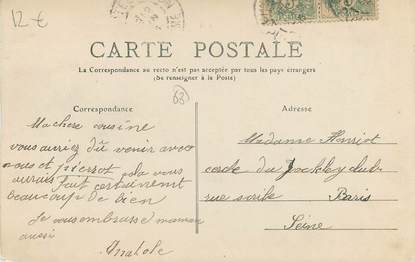 12 €
CARTE POSTALE
La Correspondance au recto n'est pas acceptée par tous les pays étrangers
(Se renseigner à la Poste)
Correspondance
63
Ma chere cousine
vous auriez dû venir avec
nous et pierrot cela vous
aurais fait certainement
beaucoup de bien
Je vous embrasse maman
aussi
Anatole
Adresse
Madame Henriot
cercle du Jockey club
rue scribe Paris
Seine